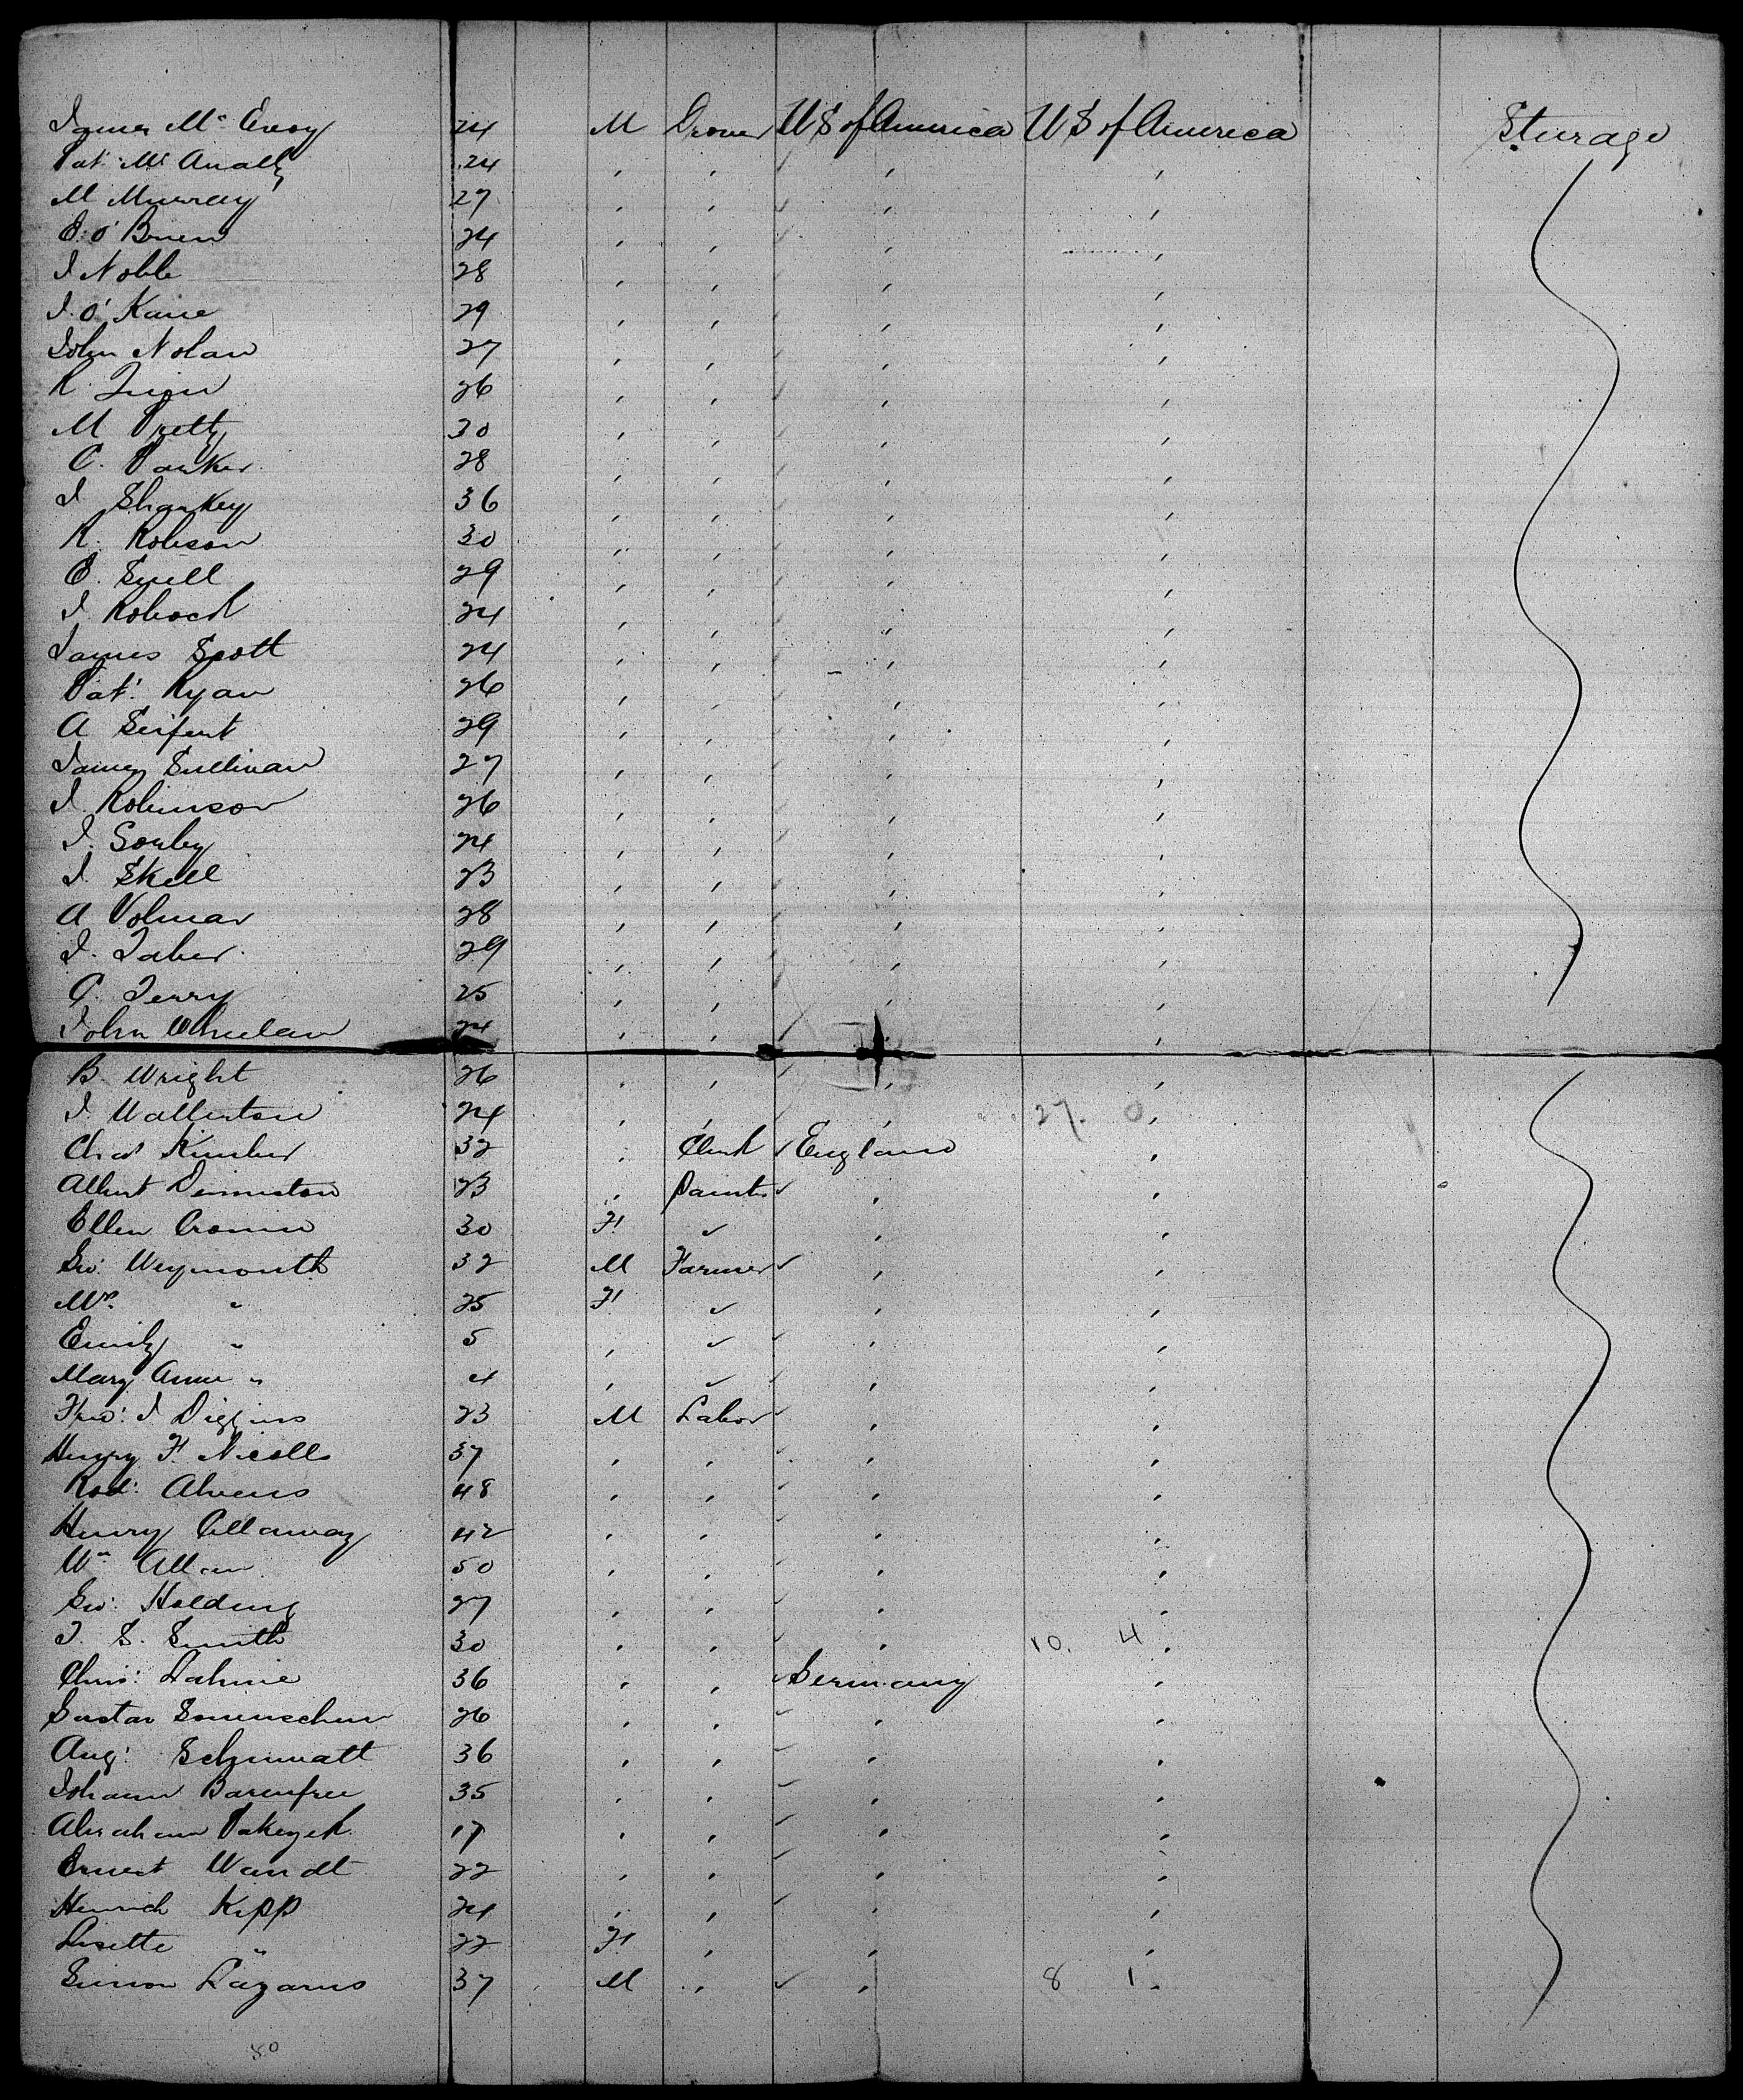 James Mc Evoy 24 M Drover U S of America U S of America Steerage
Pat Mc Anally 24 , , , ,
M Murray 27 , , , ,
E. O'Brien 24 , , , ,
J Noble 28 , , , ,
J. O'Kane 29 , , , ,
John Nolan 27 , , , ,
R. 26 , , , ,
M Pretty 30 , , , ,
C. Parker 28 , , , ,
J Sharkey 36 , , , ,
R. Robson 30 , , , ,
E. Snell 29 , , , ,
J. 24 , , , ,
James Scott 24 , , , ,
Pat. Ryan 26 , , , ,
A Seifert 29 , , , ,
James Sullivan 27 , , , ,
J. Robinson 26 , , , ,
J. Sorley 24 , , , ,
J. Skell 23 , , , ,
A Volmar 28 , , , ,
J. Taber 29 , , , ,
C. Terry 25 , , , ,
John Whelan 24 , , , ,
B. Wright 26 , , , ,
J. Wallerton 24 , , , 27. 0 ,
Chas Kimber 32 , Clerk England ,
Albert Denniston 23 , Painter , ,
Ellen Cronin 30 F ✓ , ,
Geo. Weymouth 32 M Farmer , ,
Mrs. " 25 F ✓ , ,
Emily " 5 , ✓ , ,
Mary Anne " 4 , ✓ , ,
Fred. J Diggins 23 M Labor , ,
Henry F. Nicolls 37 , , , ,
Rod. Ahrens 48 , , , ,
Henry Callaway 42 , , , ,
Wm Allan 50 , , , ,
Geo. Holding 27 , , , ,
J. S. Smith 30 , , , 10. 4 ,
Chris. Lahme 36 , , Germany ,
Gustav 26 , , , ,
Aug. 36 , , , ,
Johann Barenfree 35 , , , ,
Abraham 17 , , , ,
Ernest Wandt 22 , , , ,
Heinrich Kipp 24 , , , ,
Lisette " 22 F , , ,
Simon Lazarus 37 M , , 8 1 .
80